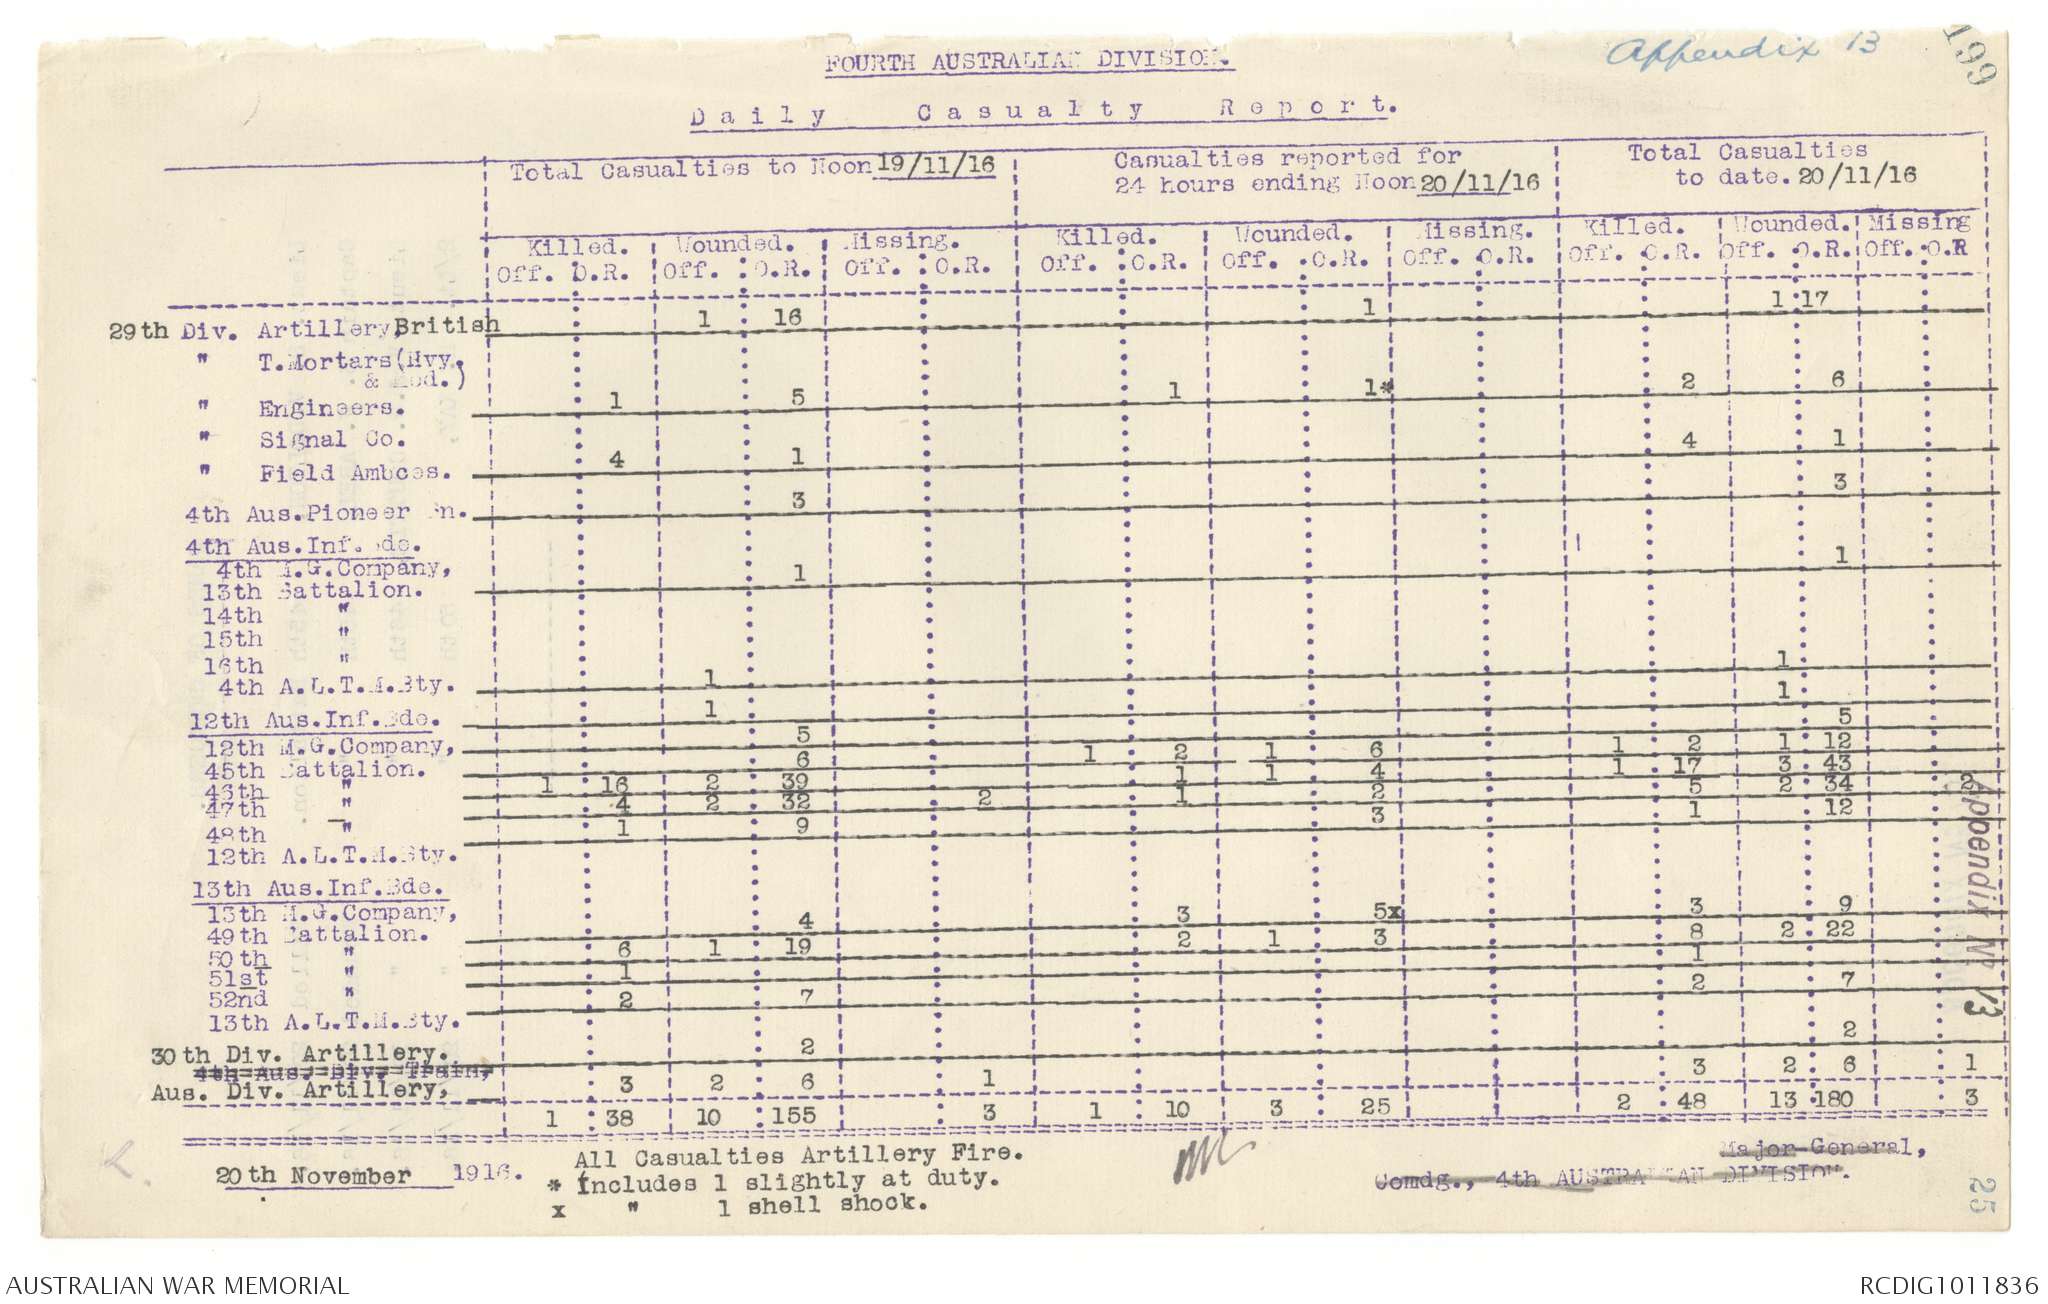 Appendix 13
199
FOURTH AUSTRALIAN DIVISION.
Daily Casualty Report.
Total Casualties to Noon 19/11/16
Casualties reported for
24 hours ending Noon 20/11/16
Total Casualties
to date. 20/11/16
Killed. Wounded. Missing. Killed. Wounded. Missing. Killed. Wounded. Missing
Off. O.R. Off. O.R. Off. O.R. Off. O.R. Off. O.R. Off. O.R. Off. O.R. Off. O.R. Off. O.R
29th Div. Artillery, British 1 16 1 1 17
" T.Mortars(Hvy.
& Med.)
" Engineers. 1 5 1 1* 2 6
" Signal Co.
" Field Ambces. 4 1 4 1
4th Aus.Pioneer Bn. 3 3
4th Aus.Inf.Bde.
4th M.G.Company,
13th Battalion. 1 1
14th "
15th "
16th "
4th A.L.T.M.Bty. 1 1
12th Aus.Inf.Bde. 1 1
12th M.G.Company, 5 5
45th Battalion. 6 1 2 1 6 1 2 1 12
46th " 1 16 2 39 1 1 4 1 17 3 43
47th " 4 2 32 2 1 2 5 2 34 2
48th " 1 9 3 1 12
12th A.L.T.M.Bty.
13th Aus.Inf.Bde.
13th M.G.Company,
49th Battalion. 4 3 5x 3 9
50th " 6 1 19 2 1 3 8 2 22
51st " 1 1
52nd " 2 7 2 7
13th A.L.T.M.Bty.
30th Div. Artillery. 2 2
4th Aus. Div. Train,
Aus. Div. Artillery, 3 2 6 1 3 2 6 1
1 38 10 155 3 1 10 3 25 2 48 13 180 3
20th November 1916.
All Casualties Artillery Fire.
* Includes 1 slightly at duty.
x " 1 shell shock.
Major-General,
Comdg., 4th AUSTRALIAN DIVISION.
Appendix No 13
25
AUSTRALIAN WAR MEMORIAL
RCDIG1011836